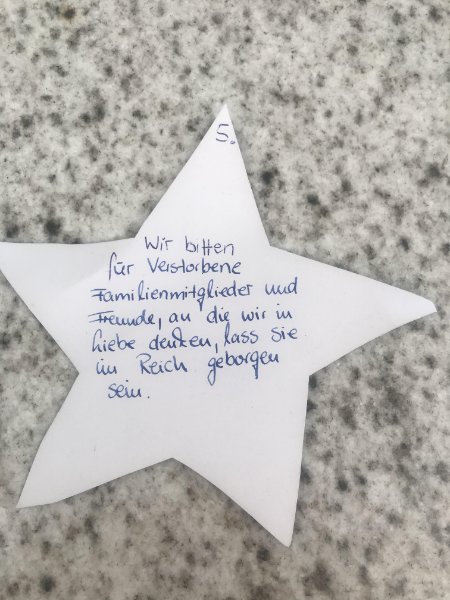 5.
Wir bitten
für Verstorbene
Familienmitglieder und
Freunde, an die wir in
Liebe denken, lass sie
im Reich geborgen
sein.